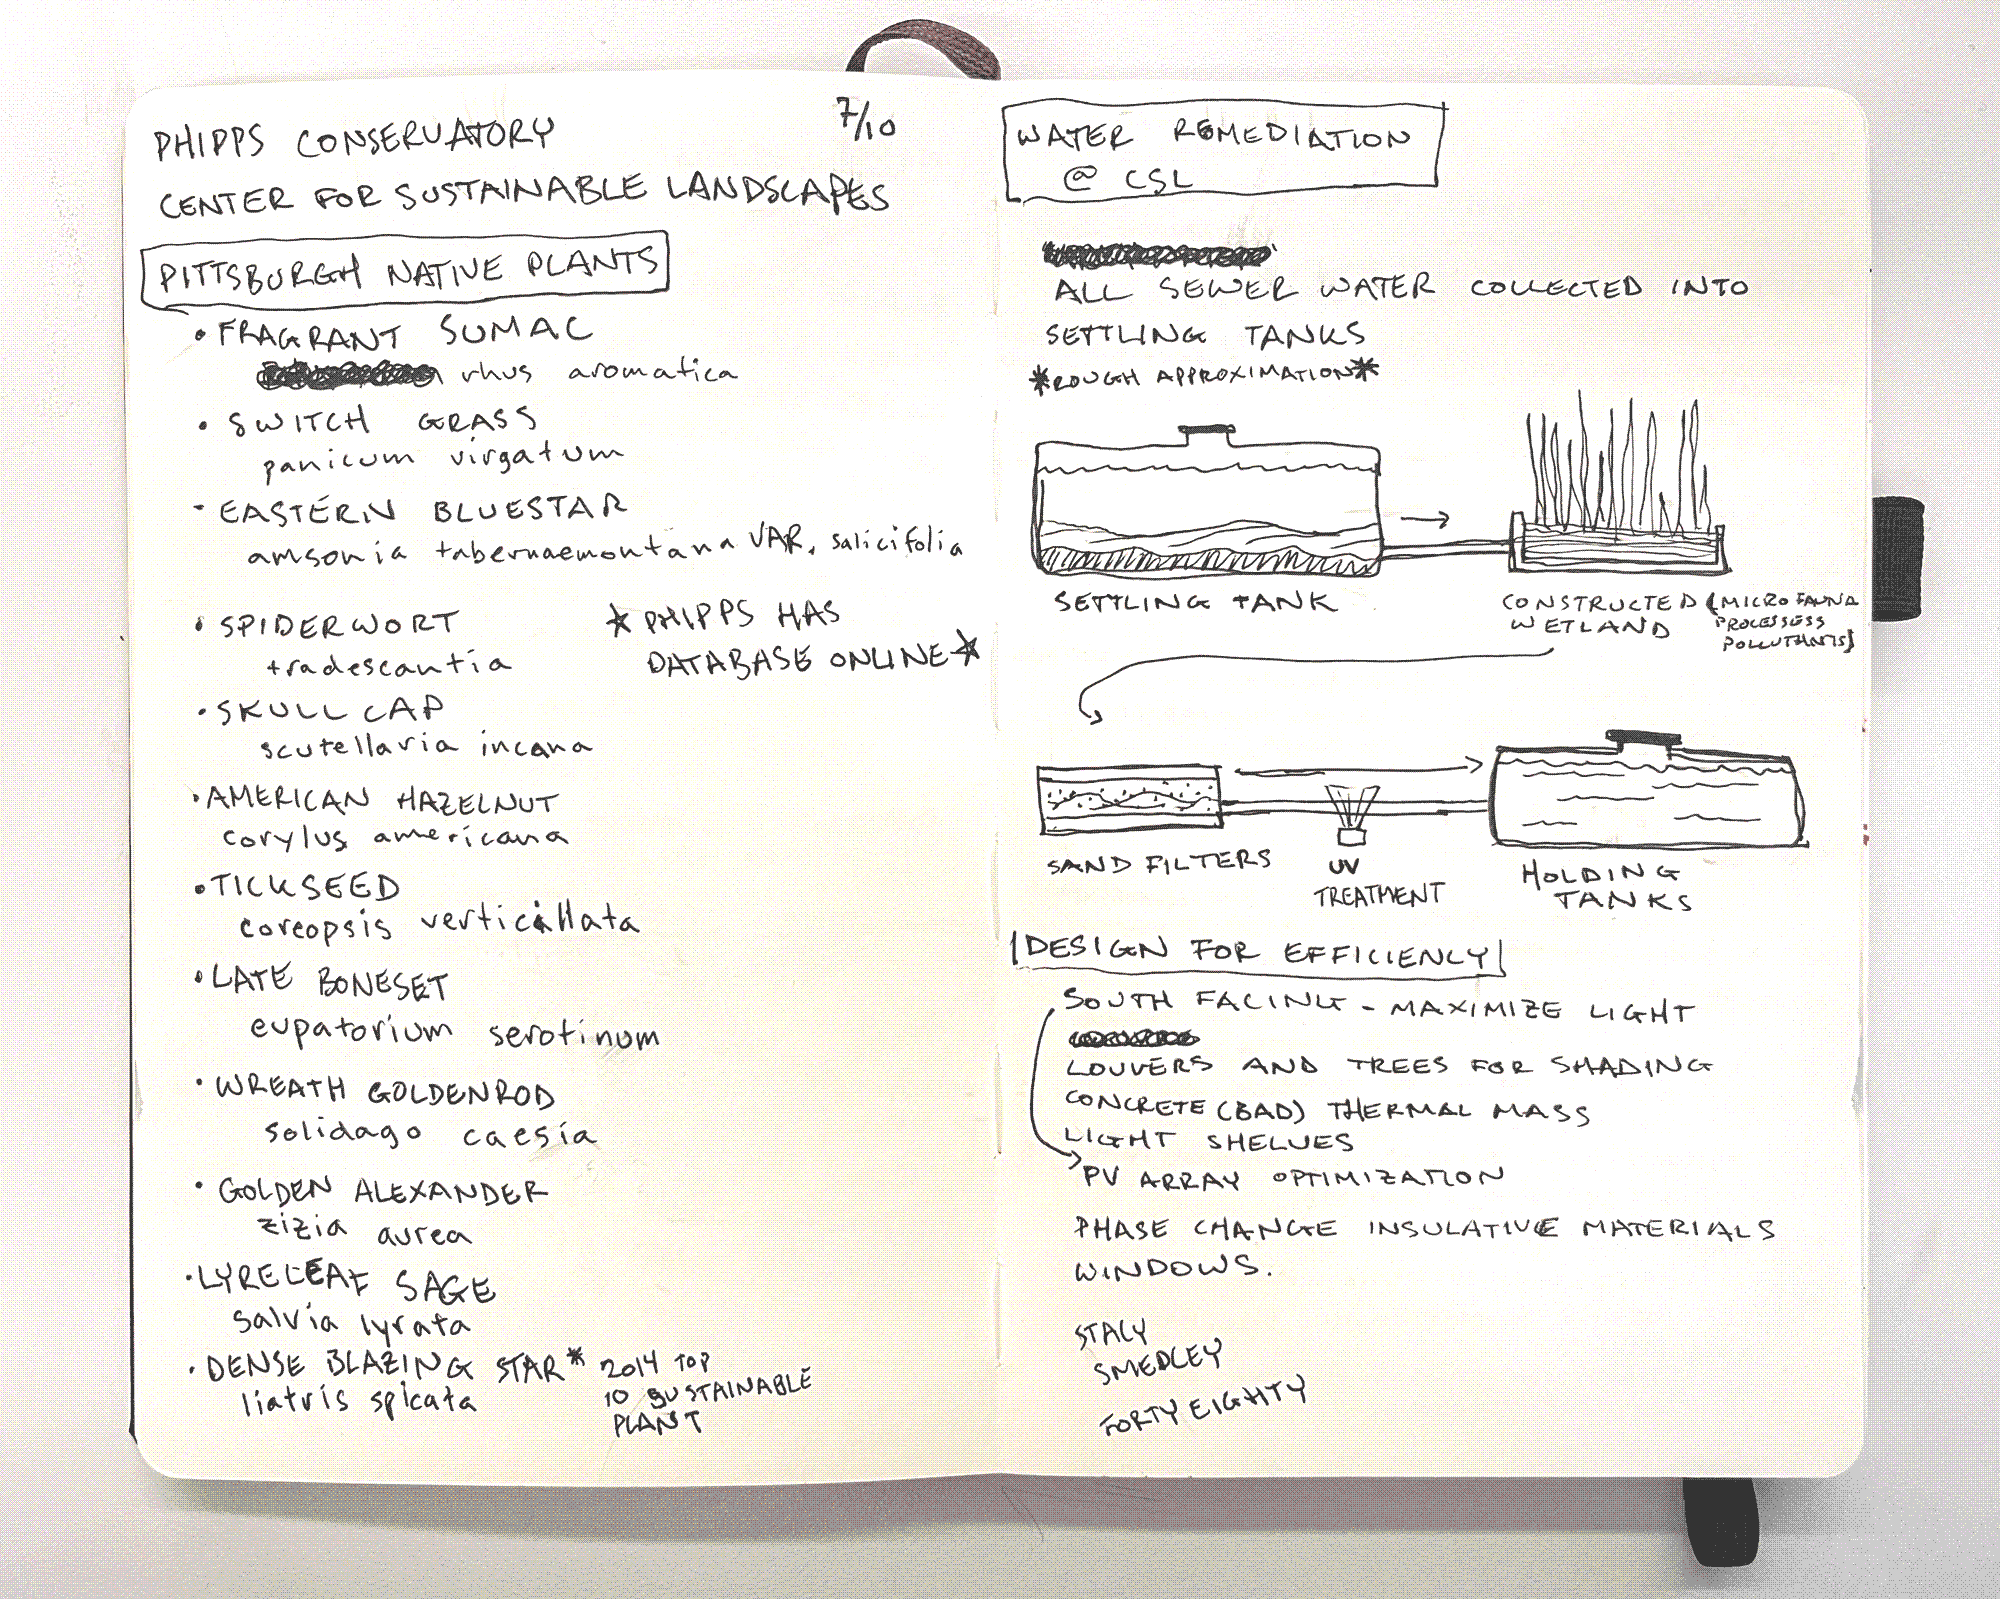 PHIPPS CONSERVATORY
7/10
CENTER FOR SUSTAINABLE LANDSCAPES
PITTSBURGH NATIVE PLANTS
• FRAGRANT SUMAC
rhus aromatica
• SWITCH GRASS
panicum virgatum
- EASTERN BLUESTAR
amsonia tabernaemontana VAR. salicifolia
• SPIDERWORT
tradescantia
* PHIPPS HAS
DATABASE ONLINE *
• SKULLCAP
scutellaria incana
• AMERICAN HAZELNUT
corylus americana
• TICKSEED
coreopsis verticillata
• LATE BONESET
eupatorium serotinum
• WREATH GOLDENROD
solidago caesia
• GOLDEN ALEXANDER
zizia aurea
• LYRELEAF SAGE
salvia lyrata
• DENSE BLAZING STAR * 2014 TOP
liatris spicata
10 SUSTAINABLE
PLANT
WATER REMEDIATION
@ CSL
ALL SEWER WATER COLLECTED INTO
SETTLING TANKS
*ROUGH APPROXIMATION*
SETTLING TANK
CONSTRUCTED
WETLAND
(MICRO FAUNA
PROCESSESS
POLLUTANTS)
SAND FILTERS
UV
TREATMENT
HOLDING
TANKS
DESIGN FOR EFFICIENCY
SOUTH FACING - MAXIMIZE LIGHT
LOUVERS AND TREES FOR SHADING
CONCRETE (BAD) THERMAL MASS
LIGHT SHELVES
PV ARRAY OPTIMIZATION
PHASE CHANGE INSULATIVE MATERIALS
WINDOWS.
STACY
SMEDLEY
FORTY EIGHTY